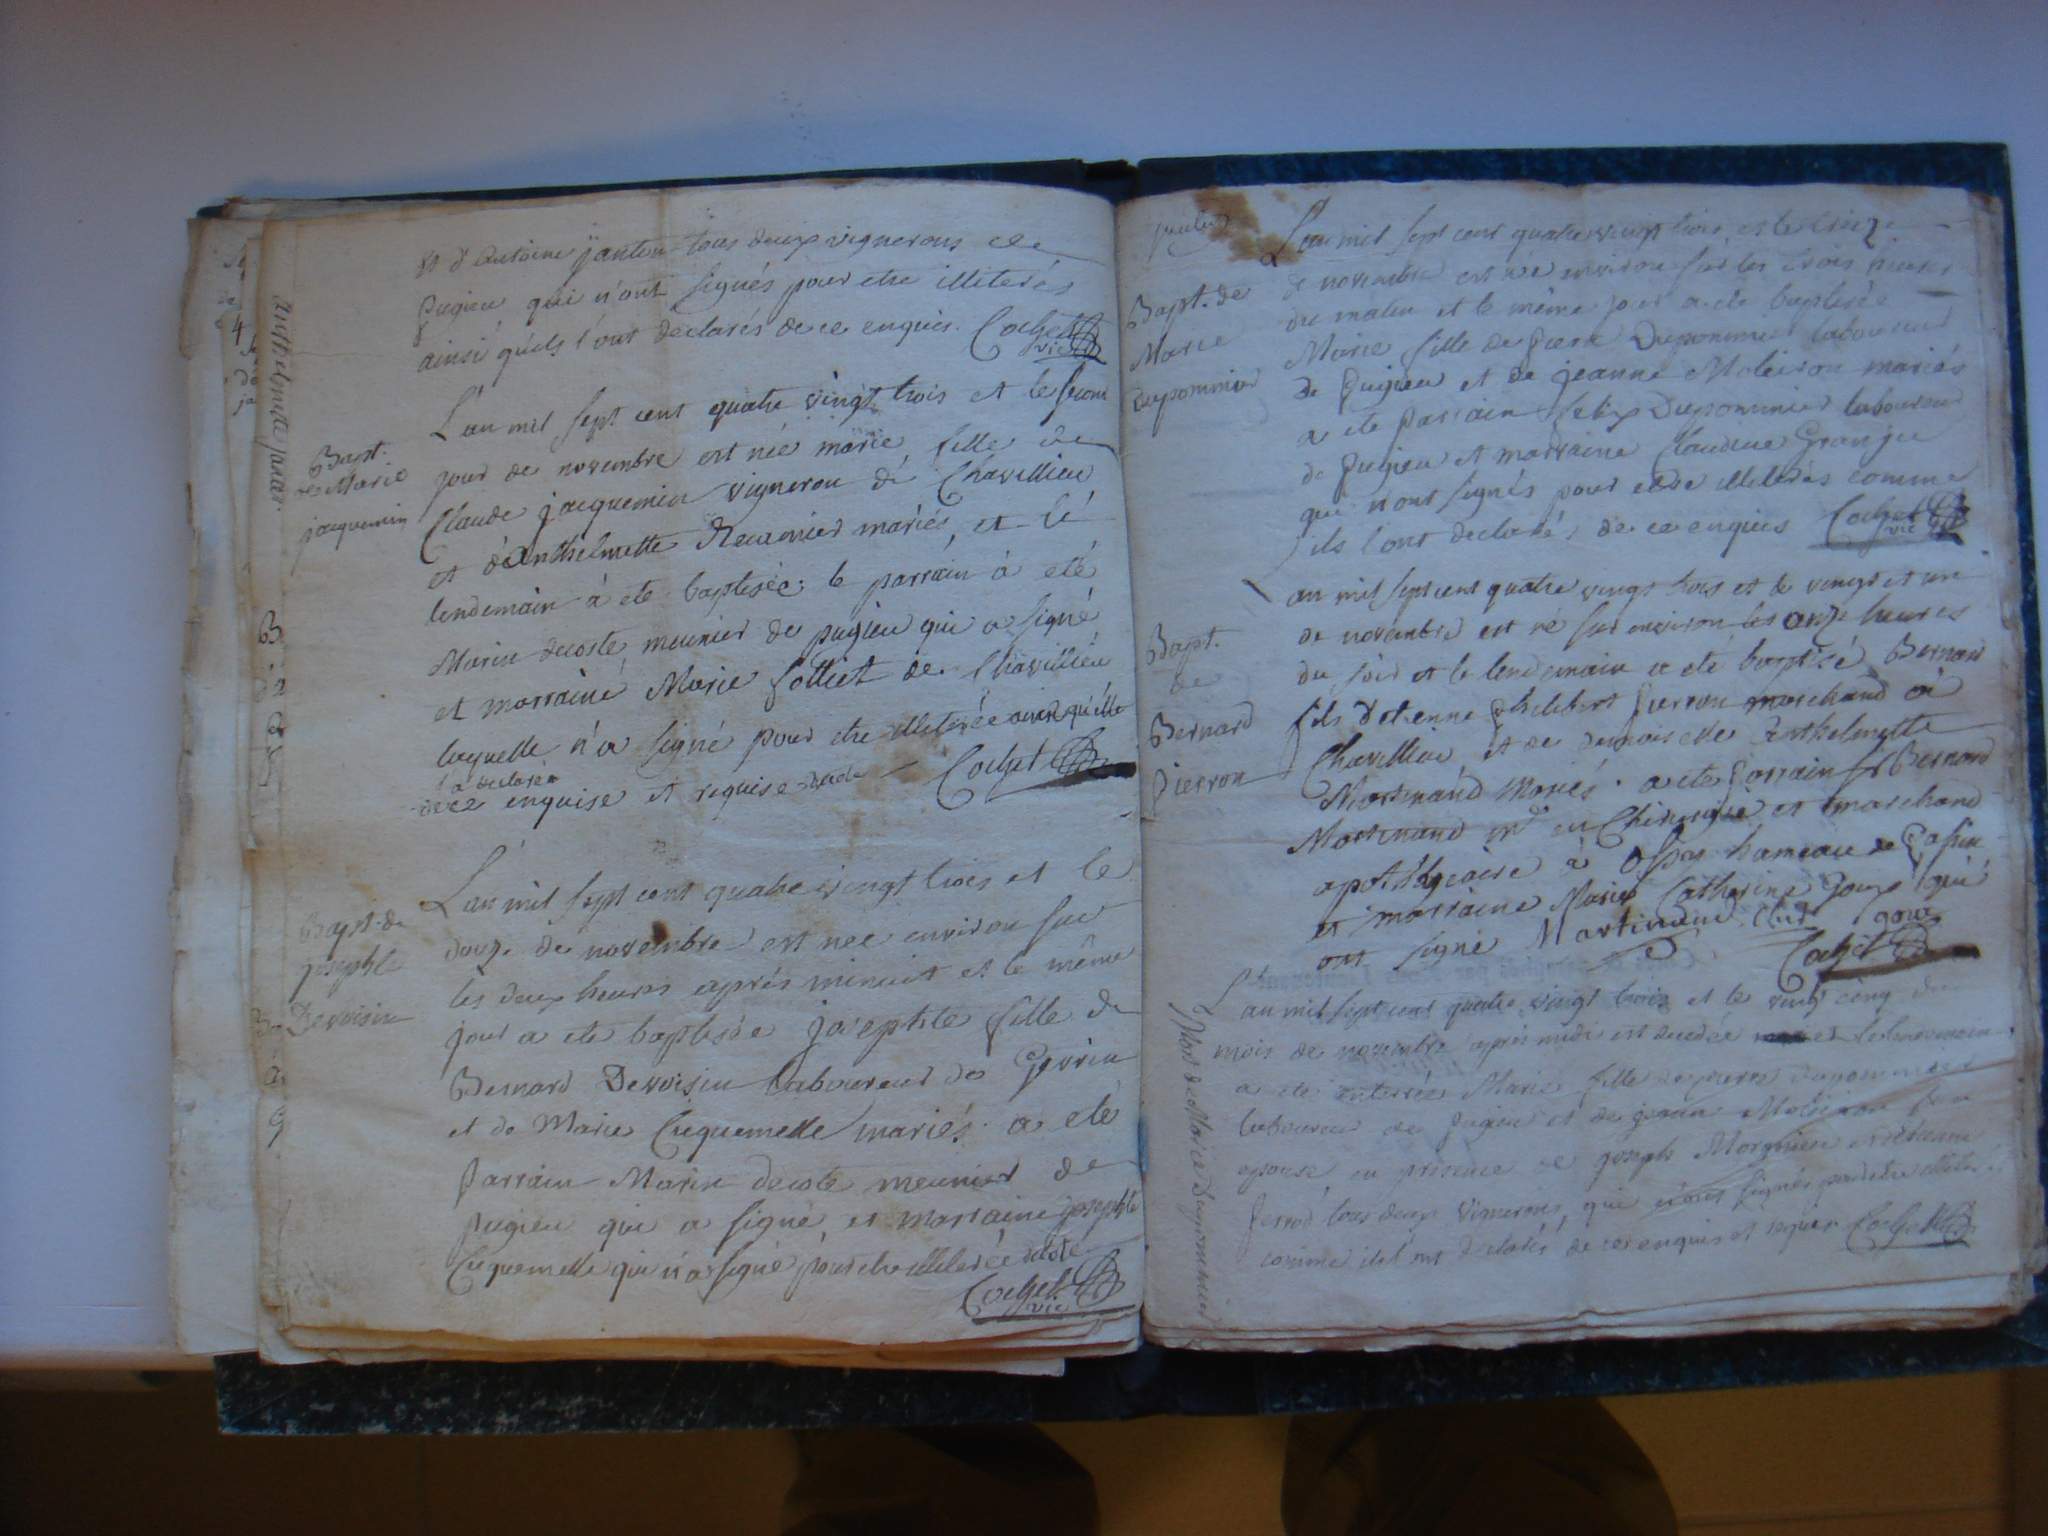 & d'Antoine janton tous deux vignerons de
Pugieu qui n'ont signés pour etre illiterés
ainsi qu'ils l'ont declarés de ce enquis. Cochet
vic
Bapt.
de Marie
jacquemin
L'an mil sept cent quatre vingt trois et le second
jour de novembre est née marie, fille de
Claude jacquemin vigneron de Chavillieu
et d'Anthelmette Recamier mariés, et le
lendemain à eté baptisée; le parrain à eté
Marin decoste meunier de pugieu qui a signé
et marraine Marie folliet de Chavillieu
laquelle n'a signé pour etre illiterée ainsi qu'elle
l'a declarée
de ce enquise et requise Cochet
Bapt. de
josephte
Devoisin
L'an mil sept cent quatre vingt trois et le
douze de novembre est née environ sur
les deux heures après minuit et le même
jour a eté baptisée josephte fille de
Bernard Devoisin laboureur de
et de Marie Cuquemelle mariés. a eté
parrain Marin decote meunier de
pugieu qui a signé et marraine josephte
Cuquemelle qui n'a signé pour etre illiterée decoté
Cochet
vic
anthelmette
Bapt. de
Marie
Dupommier
L'an mil sept cent quatre vingt trois et le treize
de novembre est née environ sur les trois heures
du matin et le même jour a eté baptisée
Marie fille de pierre Dupommier laboureur
de Pugieu et de jeanne Moleiron mariés
a eté parrain felix Dupommier laboureur
de Pugieu et marraine Claudine Granju
qui n'ont signés pour etre illiterés comme
ils l'ont declarés de ce enquis Cochet
vic
Bapt.
de
Bernard
Pierron
L'an mil sept cent quatre vingt trois et le vingt et un
de novembre est né sur environ les onze heures
du soir et le lendemain a eté baptisé Bernard
fils d'etienne philibert pierron marchand à
Chavillieu et de demoiselle Anthelmette
Martinand mariés. a eté parrain sr Bernard
Martinand md en Chirurgie et marchand
apothicaire à hameau de
et marraine Marie Catherine Goux qui
ont signé Martinand goux
Cochet
Mort de Marie Dupommier
L'an mil sept cent quatre vingt trois et le vingt cinq du
mois de novembre après midi est decedée et le lendemain
a eté enterrée Marie fille de pierre dupommier
laboureur de Pugieu et de jeanne Moleiron son
epouse, en presence de joseph
tous deux vignerons, qui n'ont signés pour etre illiterés
comme ils l'ont declarés de ce enquis et requis Cochet